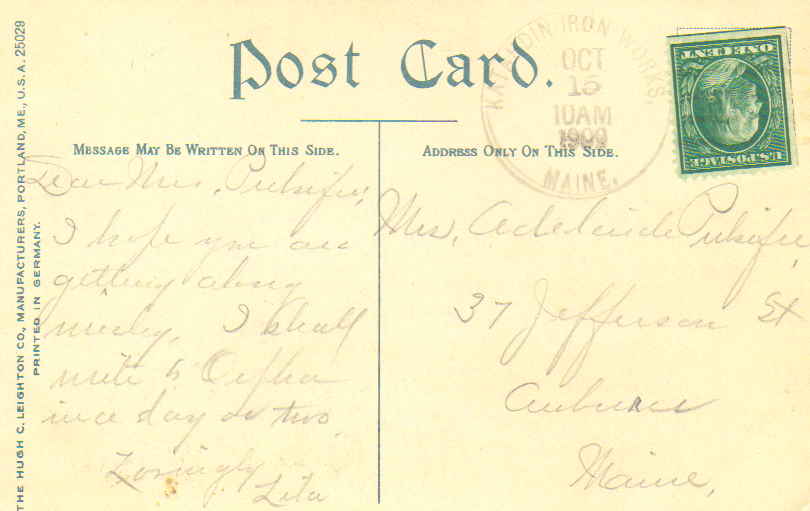 THE HUGH C. LEIGHTON CO., MANUFACTURERS, PORTLAND, ME., U.S.A. 25029
PRINTED IN GERMANY.
Post Card.
KATAHDIN IRON WORKS,
OCT
15
10AM
1909
MAINE.
U.S. POSTAGE
ONE CENT
MESSAGE MAY BE WRITTEN ON THIS SIDE.
ADDRESS ONLY ON THIS SIDE.
Dear Mrs. Pulsifer,
I hope you are
getting along
nicely. I shall
write to Orpha
in a day or two.
Lovingly
Lita
Mrs. Adelaide Pulsifer,
37 Jefferson St
Auburn
Maine,